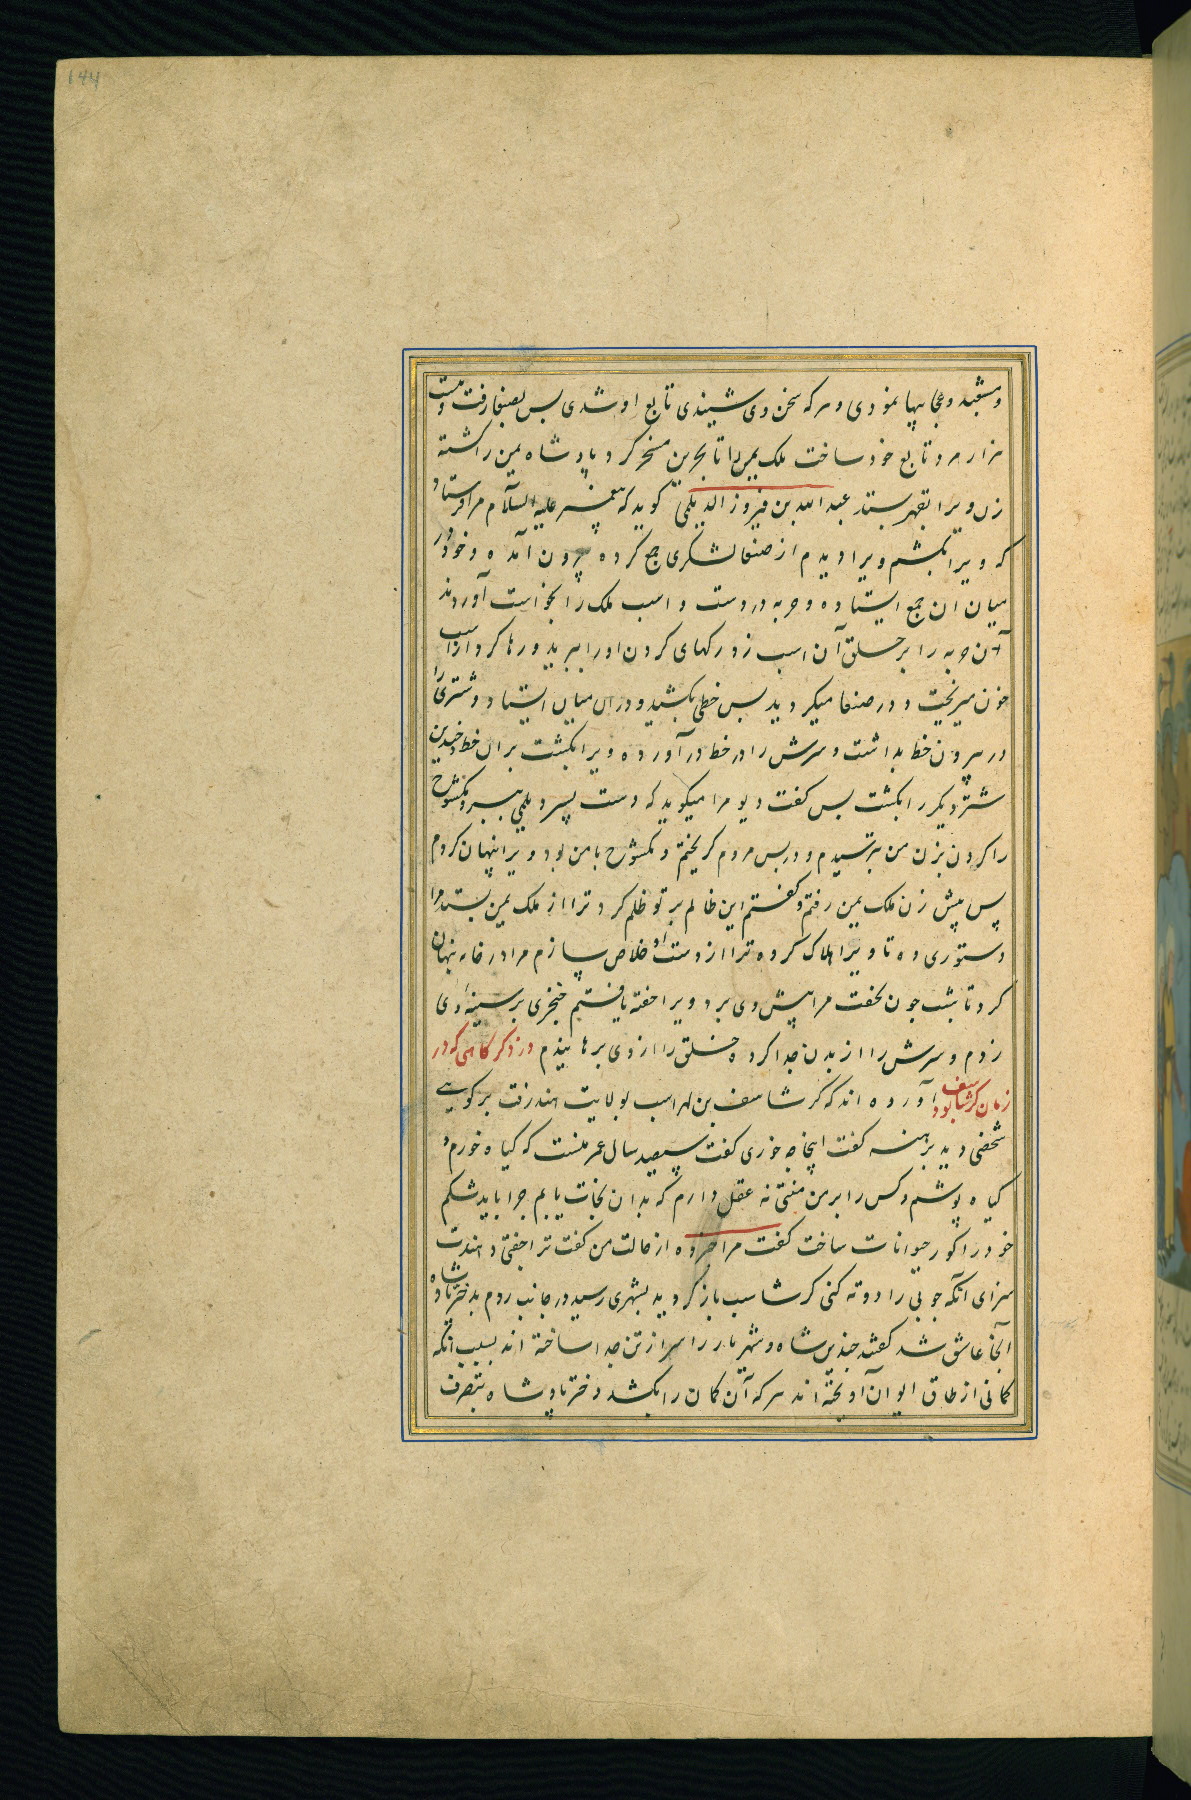 144
و مشعبد و عجایبها نمودی و هر که سخن وی شنیدی تابع او شدی پس بصنعا رفت و بیست
هزار مرد تابع خود ساخت ملک یمن را تا بحرین مسخر کرد و پادشاه یمن را کشته
زن ویرا بقهر بستد عبدالله بن فیروز الدیلمی کوید که پیغمبر علیه السلام مرا فرستاد
که ویرا بکشم ویرا دیدم از صنعا لشکری جمع کرده بیرون آمده و خود در
میان ان جمع ایستاده و حربه در دست و اسب ملک را بخواست آوردند
آن حربه را بر حلق آن اسب زد رکهای کردن او را ببرید و رها کرد از اسب
خون میریخت و در صنعا میکردید پس خطی بکشید و در ان میان ایستاد و شتری را
در بیرون خط بداشت و سرش را در خط در آورده ویرا بکشت بر ان خط و چندین
شتر دیکر را بکشت پس کفت دیو مرا میکوید که دست پسر دیلمی ببر و مکشوح
را کردن بزن من بترسیدم و در پس مردم کریختم و مکشوح با من بود ویرا پنهان کردم
پس پیش زن ملک یمن رفتم و کفتم این ظالم بر تو ظلم کرد ترا از ملک یمن بستد مرا
دستوری ده تا ویرا هلاک کرده ترا از دست او خلاص سازم مرا در خانه پنهان
کرد تا شب جون بخفت مرا پیش وی برد ویرا خفته یافتم خنجری بر سینه وی
زدم و سرش را از بدن جدا کرده خلق را از وی برهانیدم در ذکر کاهی که در
زمان کرشاسف بود آورده اند که کرشاسف بن لهراسب بولایت هند رفت بر کوهی
شخصی دید برهنه کفت اینجا چه خوری کفت سیصد سال عمر منست که کیاه خورم و
کیاه پوشم و کس را بر من منتی نه عقل دارم که بدان نجات یابم جرا باید شکم
خود را کور حیوانات ساخت کفت مرا خبر ده از حالت من کفت ترا جفتی دهندت
سزای انکه جوبی را دوته کنی کرشاسب باز کردید بشهری رسید در جانب روم بدختر پادشاه
آنجا عاشق شد کفتند چندین شاه و شهریار را سر از تن جدا ساخته اند بسبب انکه
کمانی از طاق ایوان آویخته اند هر که آن کمان را بکشد دختر پادشاه بتصرف